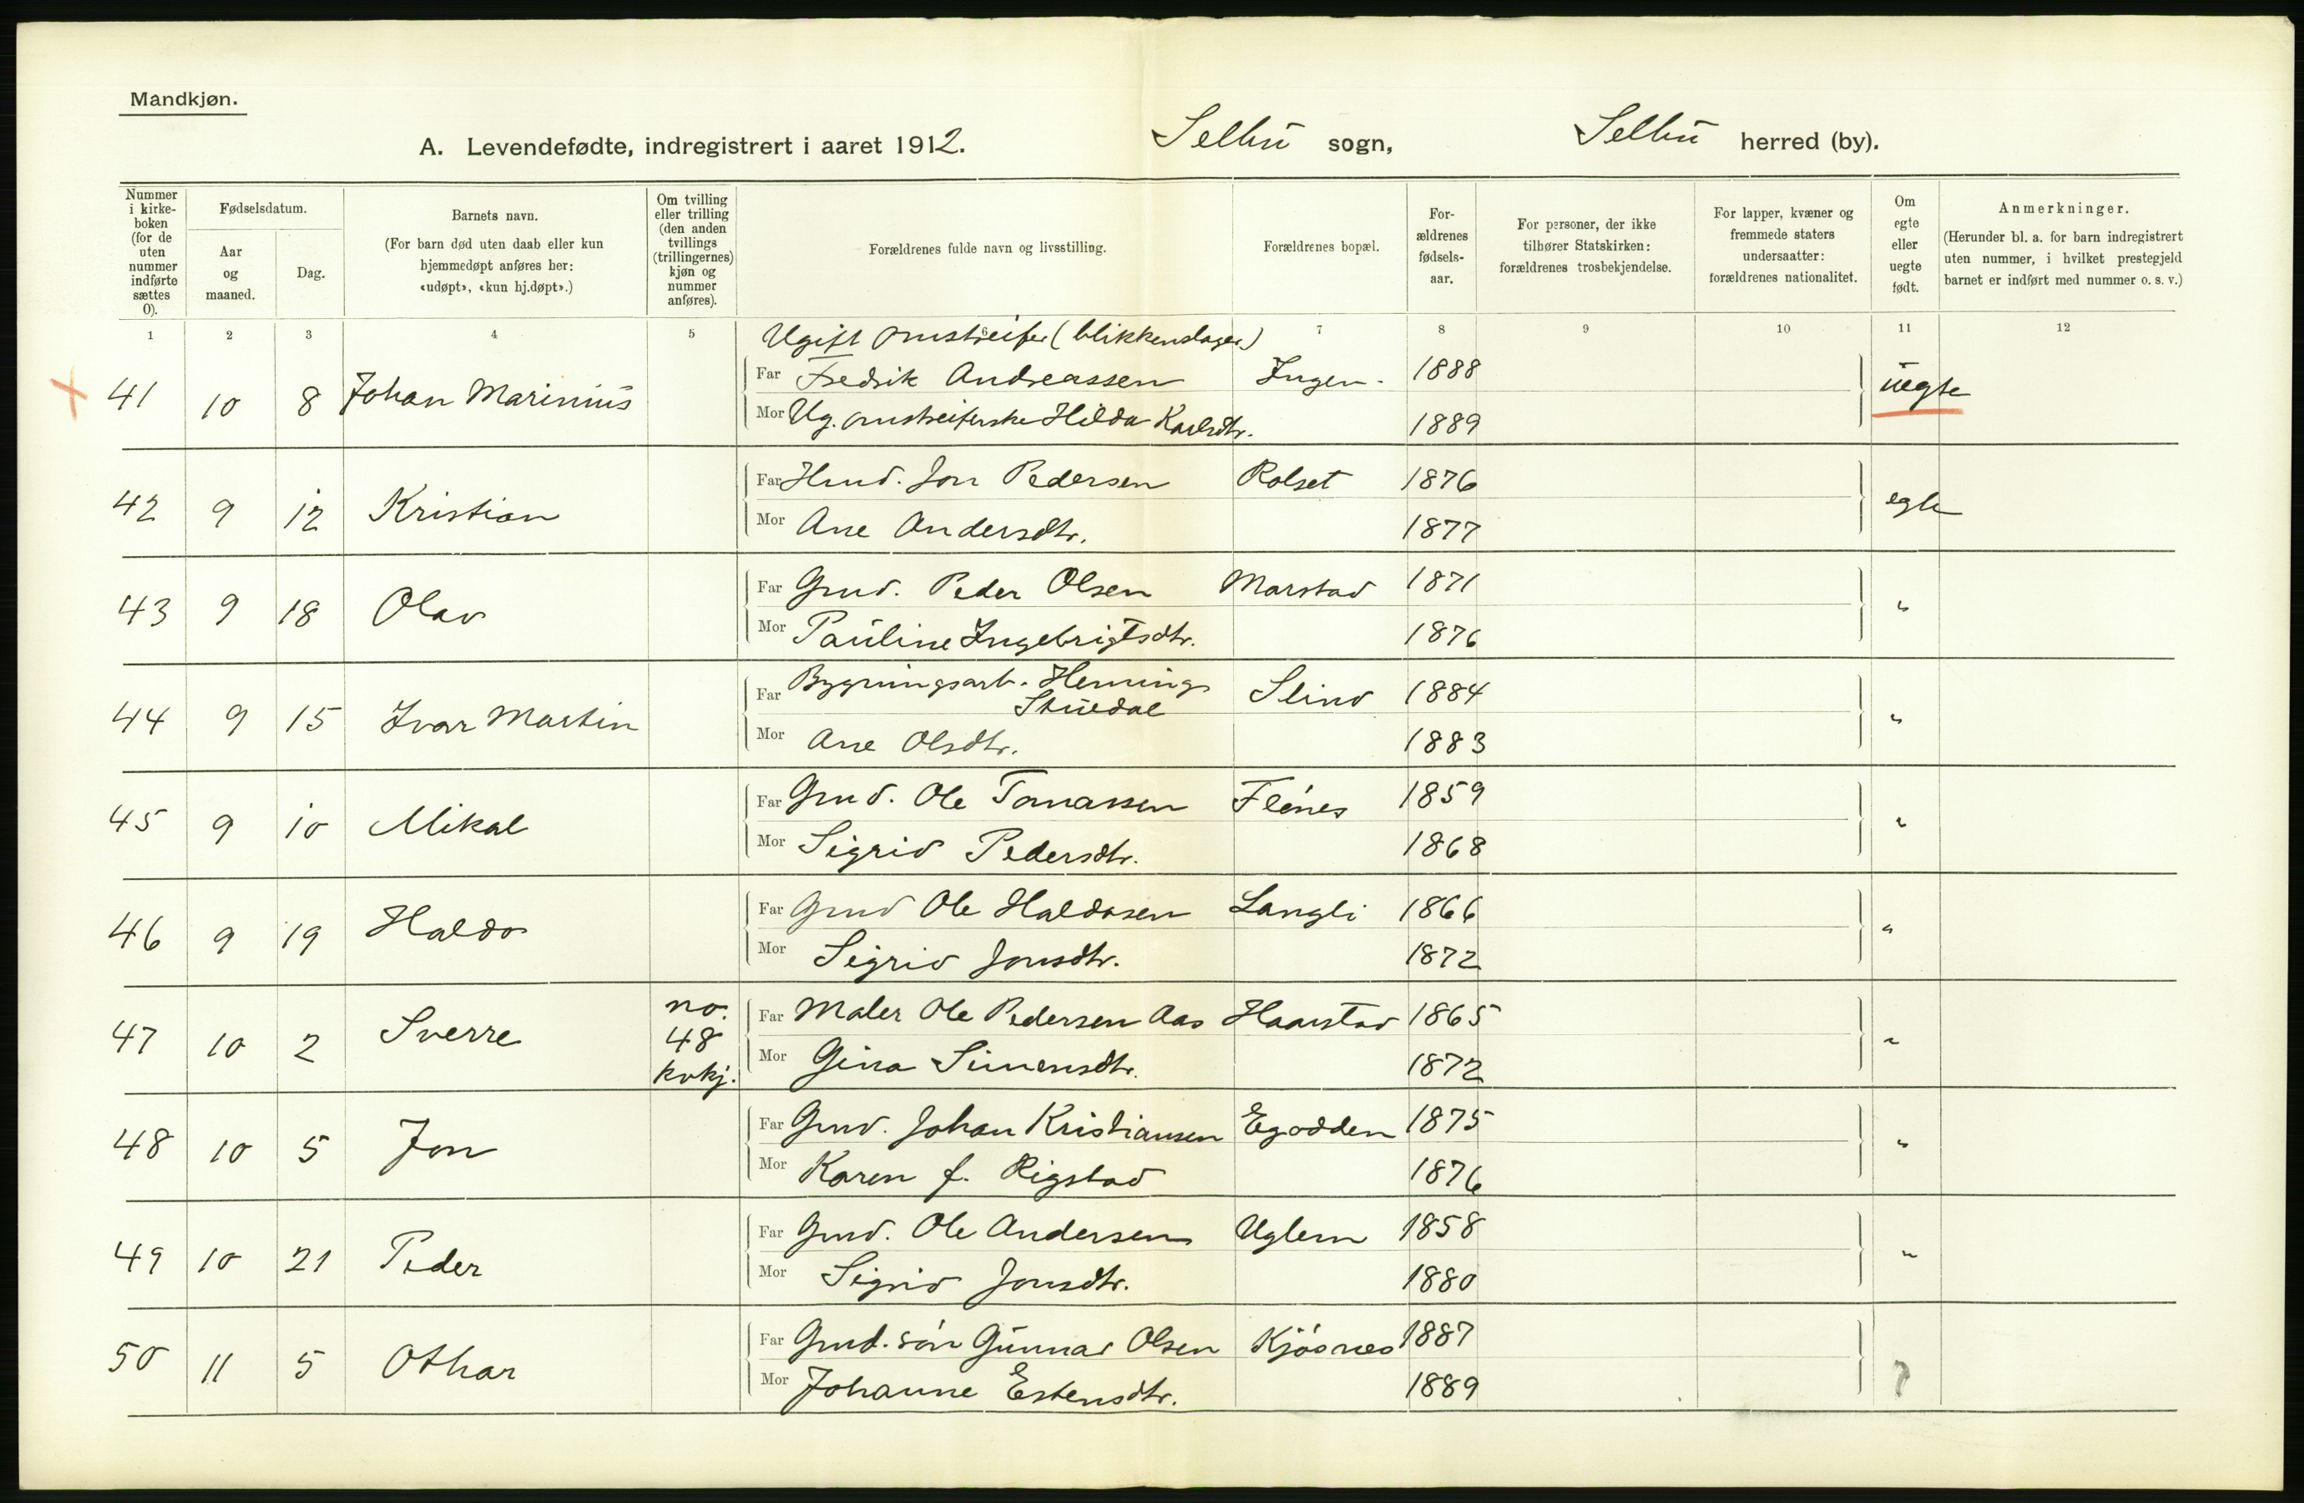 Mandkjøn.
A. Levendefødte, indregistrert i aaret 1912. Selbu sogn, Selbu herred (by).
Nummer i kirkeboken (for de uten nummer indførte sættes 0).
Fødselsdatum.
Aar og maaned.
Dag.
Barnets navn.
(For barn død uten daab eller kun hjemmedøpt anføres her: «udøpt», «kun hj.døpt».)
Om tvilling eller trilling (den anden tvillings (trillingernes) kjøn og nummer anføres).
Forældrenes fulde navn og livsstilling.
Forældrenes bopæl.
Forældrenes fødselsaar.
For personer, der ikke tilhører Statskirken: forældrenes trosbekjendelse.
For lapper, kvæner og fremmede staters undersaatter: forældrenes nationalitet.
Om egte eller uegte født.
Anmerkninger.
(Herunder bl. a. for barn indregistrert uten nummer, i hvilket prestegjeld barnet er indført med nummer o. s. v.)
1 2 3 4 5 6 7 8 9 10 11 12
Ugift omstreifer (blikkenslager)
41 10 8 Johan Marinius Far Fredrik Andreassen Ingen. 1888 uegte
Mor Ug. omstreiferske Hilda Karlsdtr. 1889
42 9 12 Kristian Far Gmd. Jon Pedersen Rolset 1876 egte
Mor Ane Andersdtr. 1877
43 9 18 Olav Far Gmd. Peder Olsen Marstad 1871 "
Mor Pauline Ingebrigtsdtr. 1876
44 9 15 Ivar Martin Far Bygningsarb. Henning Stuedal Slind 1884 "
Mor Ane Olsdtr. 1883
45 9 10 Mikal Far Gmd. Ole Tomassen Flónes 1859 "
Mor Sigrid Pedersdtr. 1868
46 9 19 Haldo Far Gmd Ole Haldosen Langli 1866 "
Mor Sigrid Jonsdtr. 1872
47 10 2 Sverre no. 48 kvkj. Far Maler Ole Pedersen Aas Haarstad 1865 "
Mor Gina Simensdtr. 1872
48 10 5 Jon Far Gmd. Johan Kristiansen Egodden 1875 "
Mor Karen f. Rigstad 1876
49 10 21 Peder Far Gmd. Ole Andersen Uglem 1858 "
Mor Sigrid Jonsdtr. 1880
50 11 5 Othar Far Gmd. són Gunnar Olsen Kjósnes 1887 ?
Mor Johanne Estensdtr. 1889